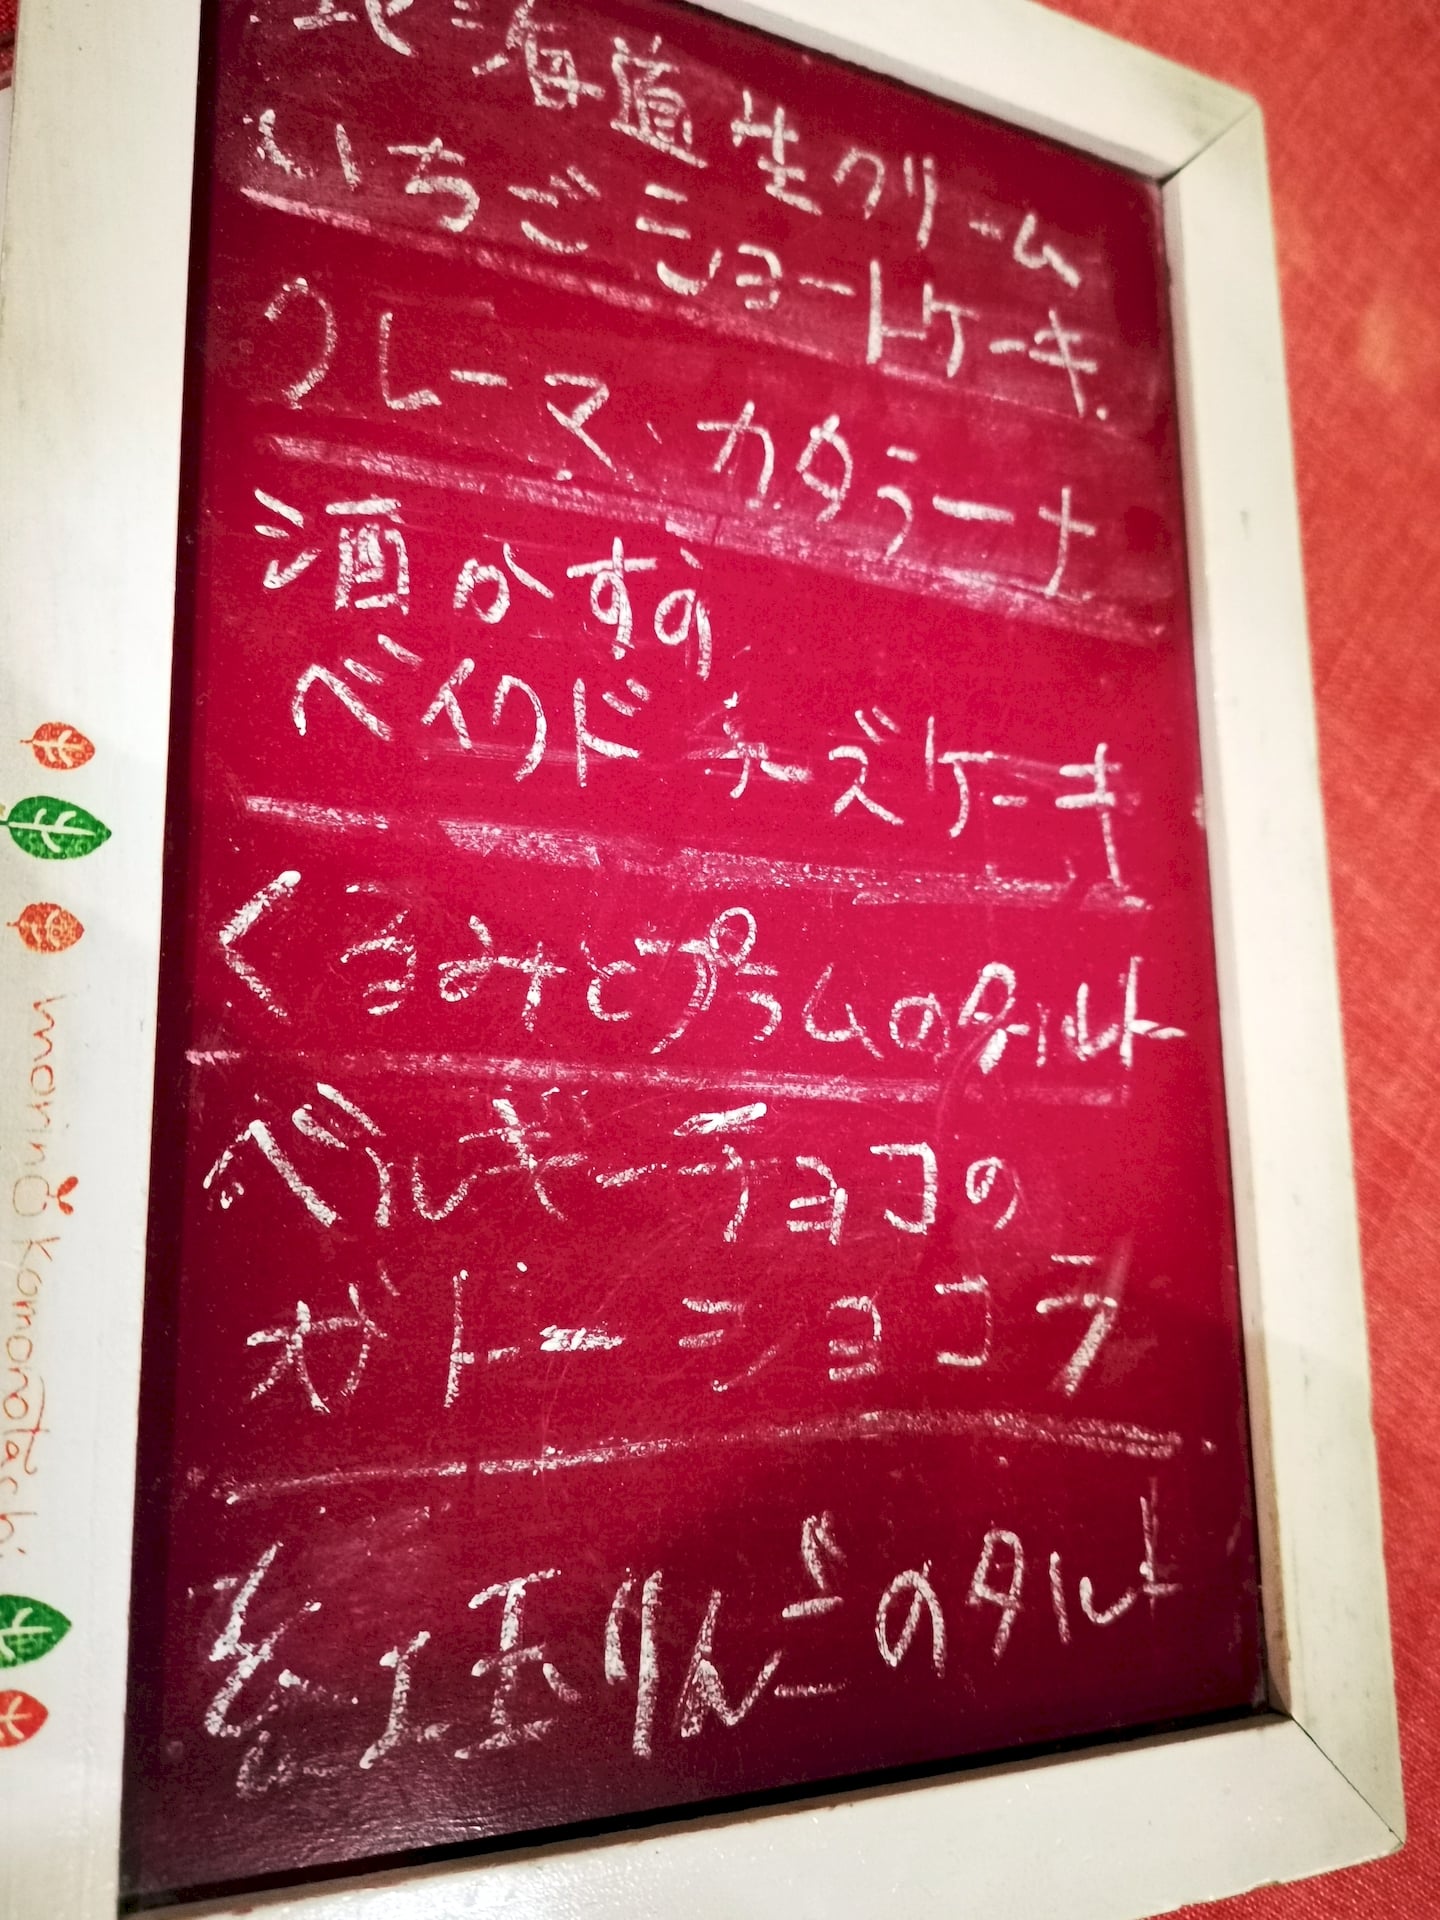 北海道生クリーム
いちごショートケーキ
クレーマ カタラーナ
酒かすの
ベイクドチーズケーキ
くるみとプラムのタルト
ベルギーチョコの
ガトーショコラ
紅玉りんごのタルト
morino Komonotachi